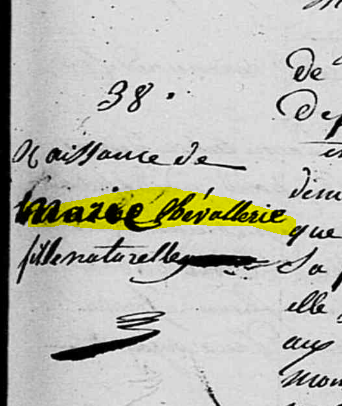 38.
Naissance de
Marie Chévallerie
fille naturelle
de
Dep
dem
que
Sa
elle
aux
mon